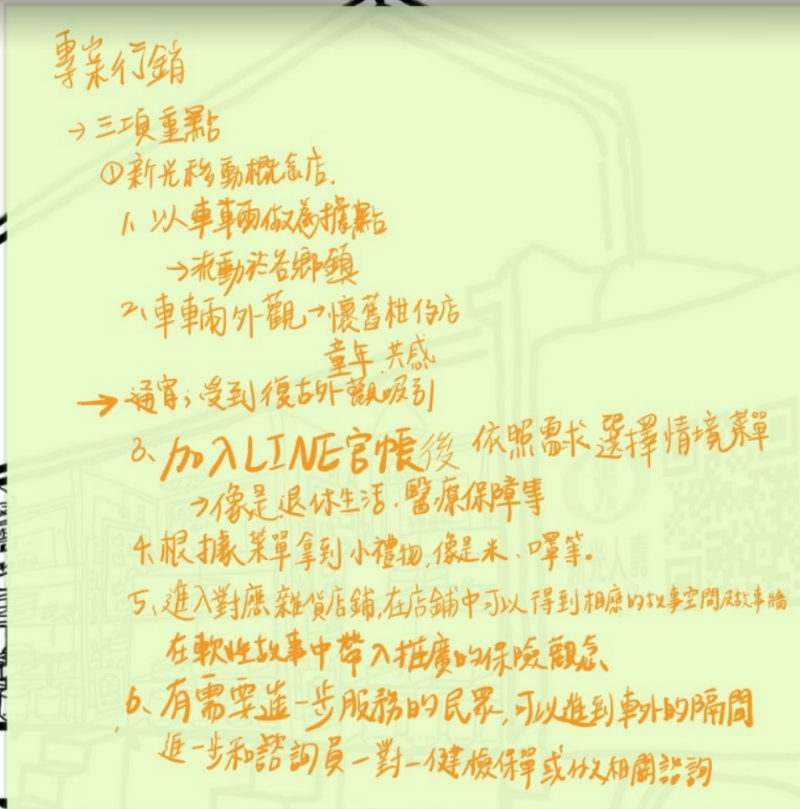 專案行銷
→三項重點
①新光移動概念店.
1、以車輛做為據點
→流動於各鄉鎮
2、車輛外觀→懷舊柑仔店
童年.共感
→ 受到復古外觀吸引
3、加入LINE官帳後 依照需求 選擇情境菜單
→像是退休生活.醫療保障等
4、根據菜單拿到小禮物,像是米、等。
5、進入對應雜貨店鋪,在店鋪中可以得到相應的故事空間及故事牆
在軟性故事中帶入推廣的保險觀念、
6、有需要進一步服務的民眾,可以進到車外的隔間
進一步和諮詢員一對一健檢保單或做相關諮詢
光人壽